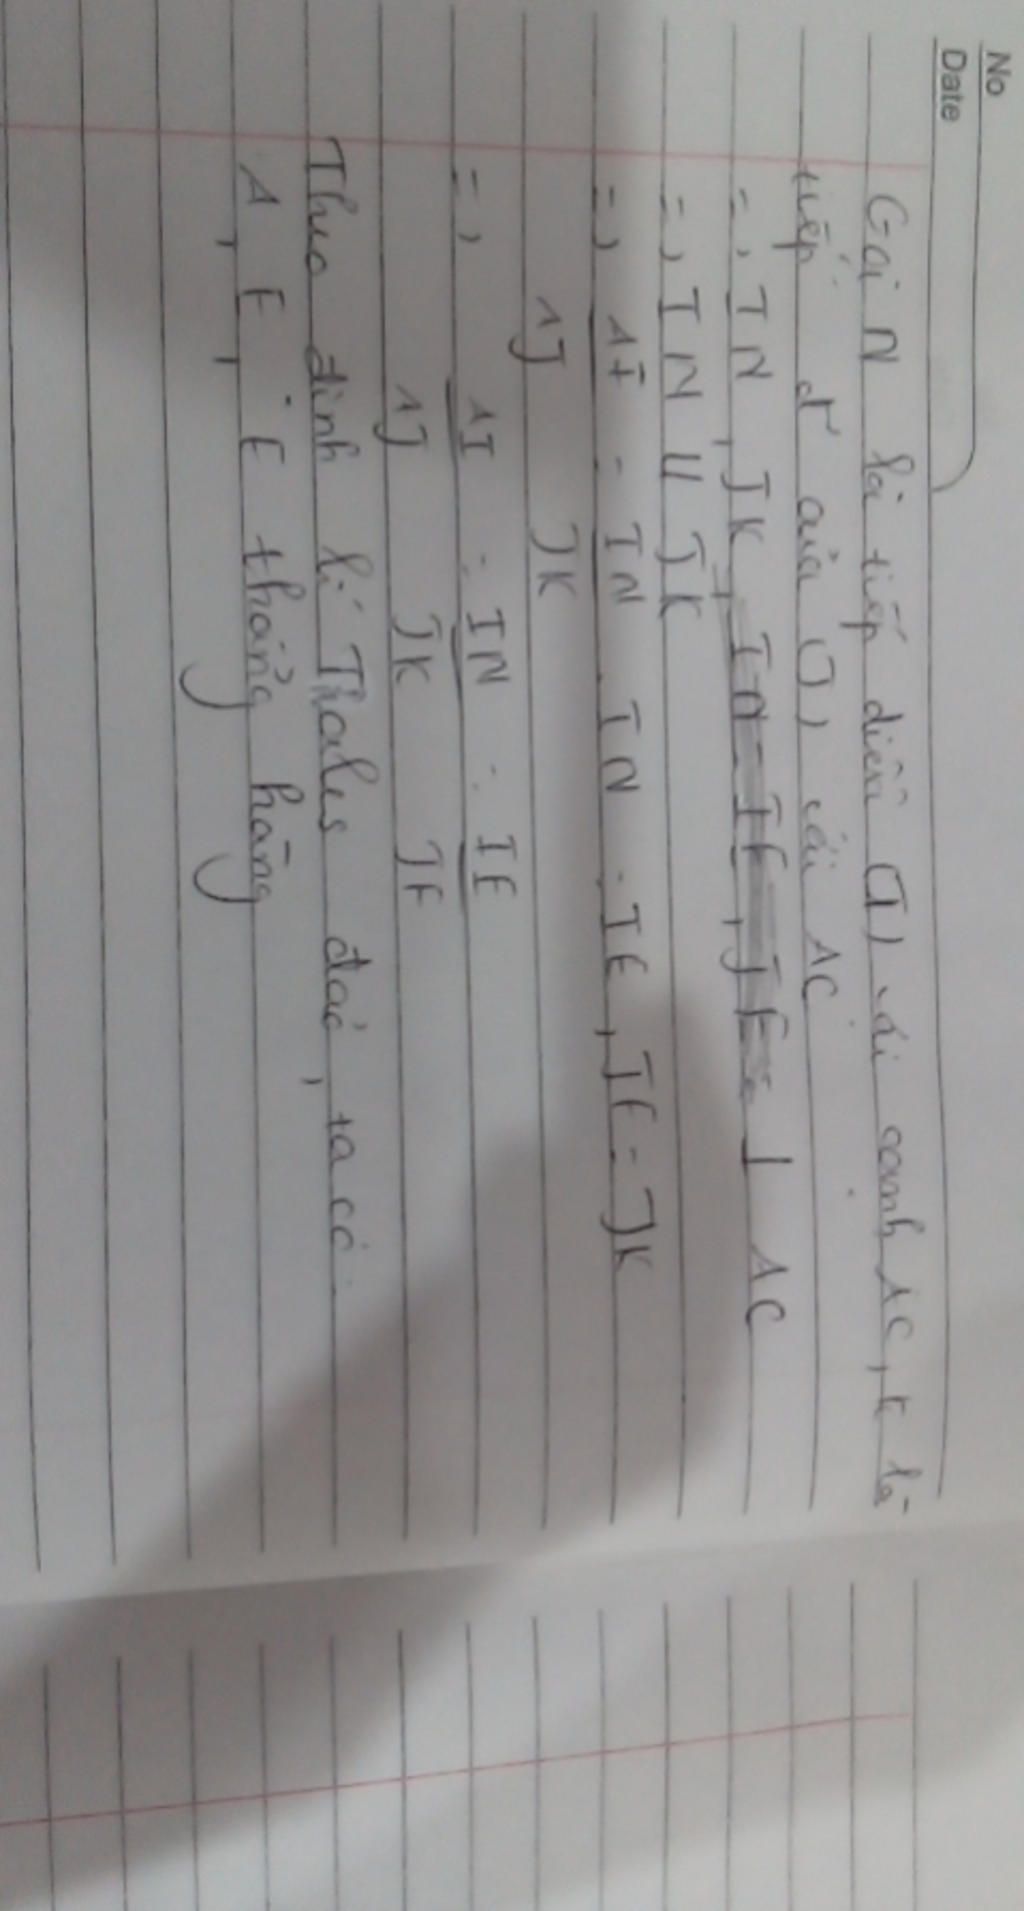 No
Date
Gọi N là tiếp điểm (I) với cạnh AC, K là
tiếp đ' của (J) với AC
=, IN, JK ⊥ AC
=, IN // JK
=, AI = IN IN = IE, JF = JK
AJ JK
=, AI = IN = IE
AJ JK JF
Theo định lí Thales đảo, ta có
A, E, F thẳng hàng